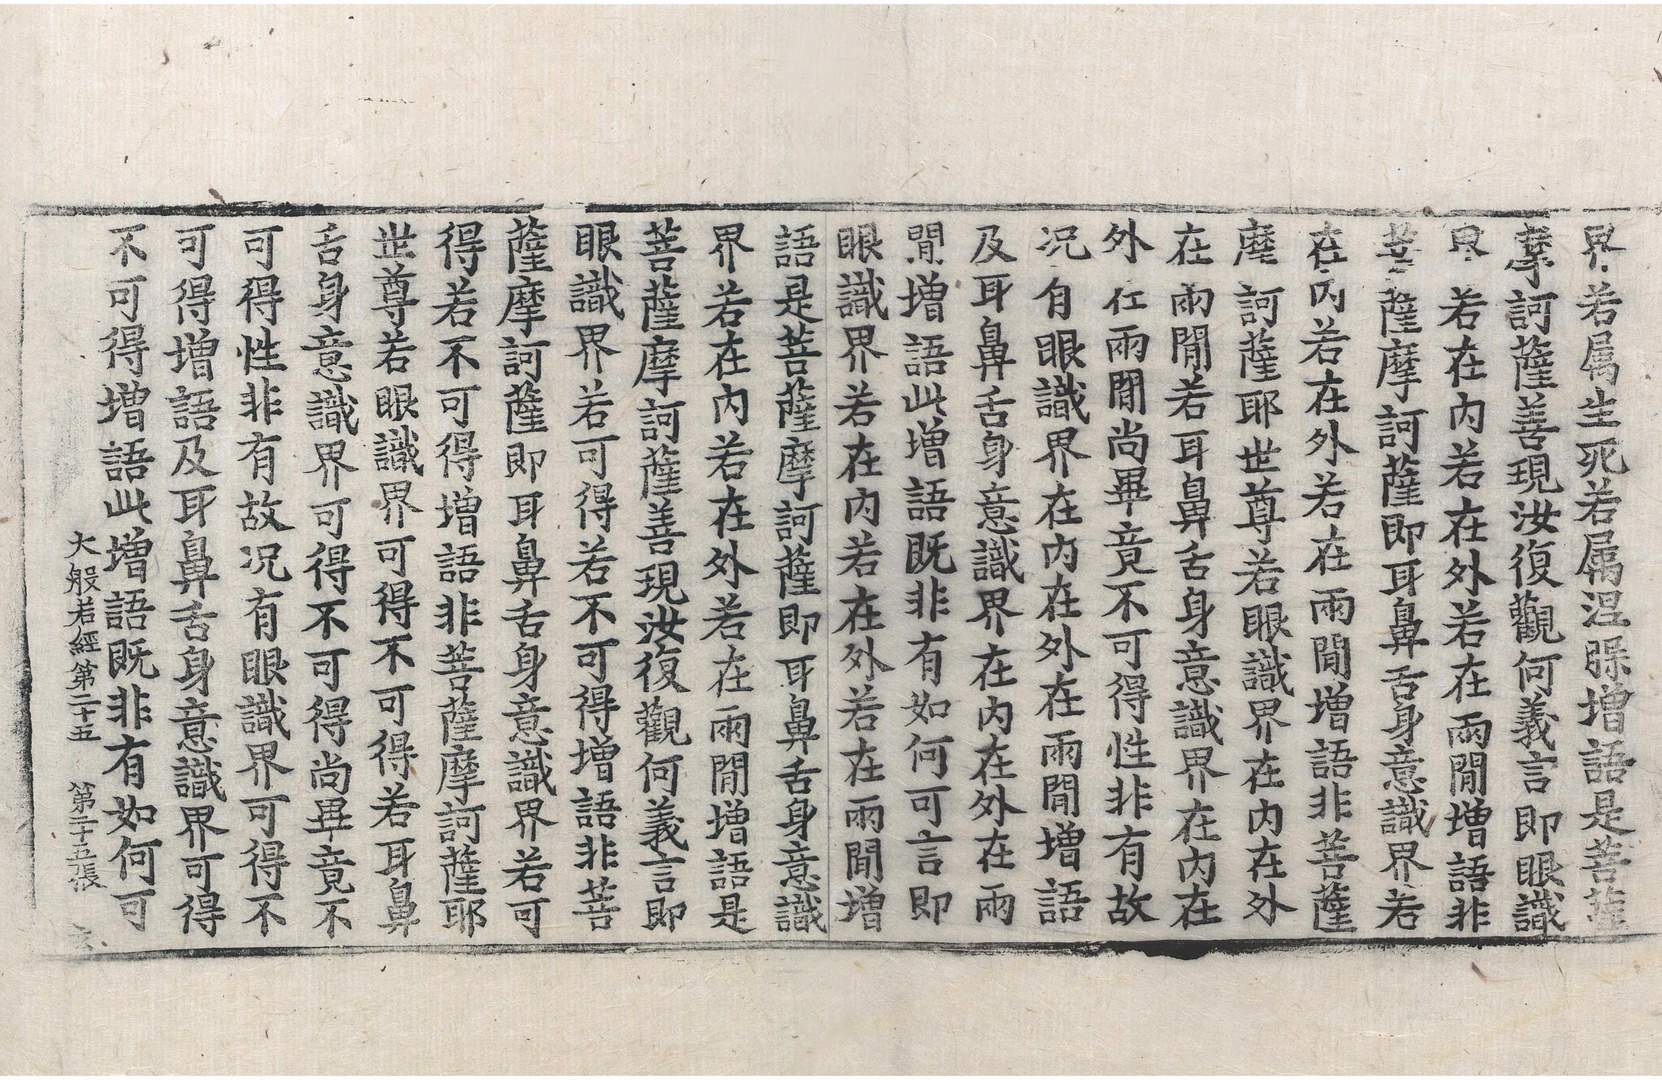 界若属生死若属涅槃增語是菩薩
摩訶薩善現汝復觀何義言即眼識
界若在內若在外若在兩閒增語非
菩薩摩訶薩即耳鼻舌身意識界若
在內若在外若在兩閒增語非菩薩
摩訶薩耶世尊若眼識界在內在外
在兩閒若耳鼻舌身意識界在內在
外在兩閒尚畢竟不可得性非有故
况有眼識界在內在外在兩閒增語
及耳鼻舌身意識界在內在外在兩
閒增語此增語既非有如何可言即
眼識界若在內若在外若在兩閒增
語是菩薩摩訶薩即耳鼻舌身意識
界若在內若在外若在兩閒增語是
菩薩摩訶薩善現汝復觀何義言即
眼識界若可得若不可得增語非菩
薩摩訶薩即耳鼻舌身意識界若可
得若不可得增語非菩薩摩訶薩耶
世尊若眼識界可得不可得若耳鼻
舌身意識界可得不可得尚畢竟不
可得性非有故况有眼識界可得不
可得增語及耳鼻舌身意識界可得
不可得增語此增語既非有如何可
大般若經第二十五 第二十五張